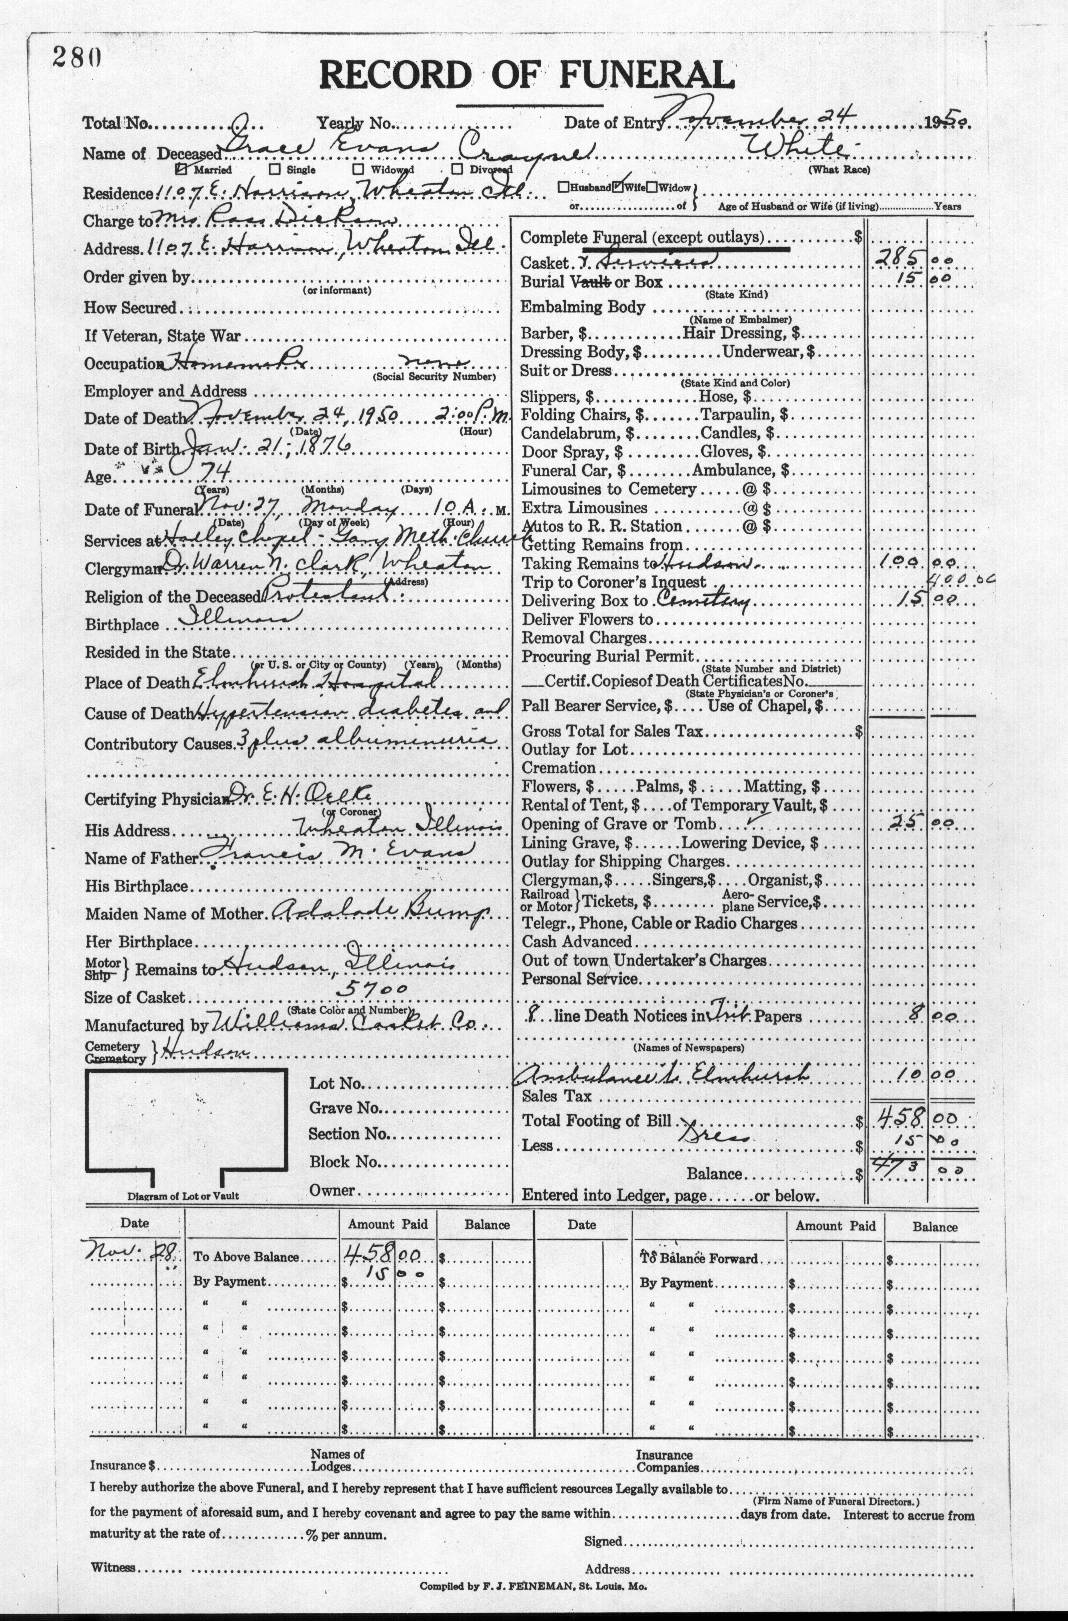 280
RECORD OF FUNERAL
Total No. Yearly No. Date of Entry November 24 1950
Name of Deceased Grace Evans Crayne White
Married Single Widowed Divorced (What Race)
Residence 1107 E. Harrison, Wheaton Ill. Husband Wife Widow
or of Age of Husband or Wife (if living) Years
Charge to Mrs Ross Dickens
Address 1107 E. Harrison, Wheaton Ill.
Order given by
(or informant)
How Secured
If Veteran, State War
Occupation Homemaker none
(Social Security Number)
Employer and Address
Date of Death November 24, 1950 2:00 P. M.
(Date) (Hour)
Date of Birth Jan. 21, 1876
Age 74
(Years) (Months) (Days)
Date of Funeral Nov. 27, Monday 10 A. M.
(Date) (Day of Week) (Hour)
Services at Holley Chapel - Gary Meth. Church
Clergyman Dr. Warren N. Clark, Wheaton
(Address)
Religion of the Deceased Protestant
Birthplace Illinois
Resided in the State
(or U. S. or City or County) (Years) (Months)
Place of Death Elmhurst Hospital
Cause of Death Hypertension diabetes and
Contributory Causes 3 plus albumenuria
Certifying Physician Dr. E. H. Oelke
(or Coroner)
His Address Wheaton Illinois
Name of Father Francis M. Evans
His Birthplace
Maiden Name of Mother Adalade Bump
Her Birthplace
Motor
Ship Remains to Hudson, Illinois
Size of Casket 5700
(State Color and Number)
Manufactured by Williams Casket Co.
Cemetery
Crematory Hudson
Lot No.
Grave No.
Section No.
Block No.
Owner
Diagram of Lot or Vault
Complete Funeral (except outlays) $
Casket & Services 285 00
Burial Vault or Box 15 00
(State Kind)
Embalming Body
(Name of Embalmer)
Barber, $ Hair Dressing, $
Dressing Body, $ Underwear, $
Suit or Dress
(State Kind and Color)
Slippers, $ Hose, $
Folding Chairs, $ Tarpaulin, $
Candelabrum, $ Candles, $
Door Spray, $ Gloves, $
Funeral Car, $ Ambulance, $
Limousines to Cemetery @ $
Extra Limousines @ $
Autos to R. R. Station @ $
Getting Remains from
Taking Remains to Hudson 100 00
Trip to Coroner's Inquest 400 00
Delivering Box to Cemetery 15 00
Deliver Flowers to
Removal Charges
Procuring Burial Permit
(State Number and District)
Certif. Copies of Death Certificates No.
(State Physician's or Coroner's
Pall Bearer Service, $ Use of Chapel, $
Gross Total for Sales Tax $
Outlay for Lot
Cremation
Flowers, $ Palms, $ Matting, $
Rental of Tent, $ of Temporary Vault, $
Opening of Grave or Tomb 25 00
Lining Grave, $ Lowering Device, $
Outlay for Shipping Charges
Clergyman, $ Singers, $ Organist, $
Railroad
or Motor Tickets, $ Aero-
plane Service, $
Telegr., Phone, Cable or Radio Charges
Cash Advanced
Out of town Undertaker's Charges
Personal Service
8 line Death Notices in Trib. Papers 8 00
(Names of Newspapers)
Ambulance to Elmhurst 10 00
Sales Tax
Total Footing of Bill $ 458 00
Less Dress $ 15 00
Balance $ 473 00
Entered into Ledger, page or below.
Date Amount Paid Balance Date Amount Paid Balance
Nov. 28 To Above Balance 458 00 $ To Balance Forward $
" By Payment $ 15 00 $ By Payment $ $
" " $ $ " " $ $
" " $ $ " " $ $
" " $ $ " " $ $
" " $ $ " " $ $
" " $ $ " " $ $
" " $ $ " " $ $
Insurance $ Names of
Lodges Insurance
Companies
I hereby authorize the above Funeral, and I hereby represent that I have sufficient resources Legally available to
(Firm Name of Funeral Directors.)
for the payment of aforesaid sum, and I hereby covenant and agree to pay the same within days from date. Interest to accrue from
maturity at the rate of % per annum.
Signed
Witness Address
Compiled by F. J. FEINEMAN, St. Louis, Mo.